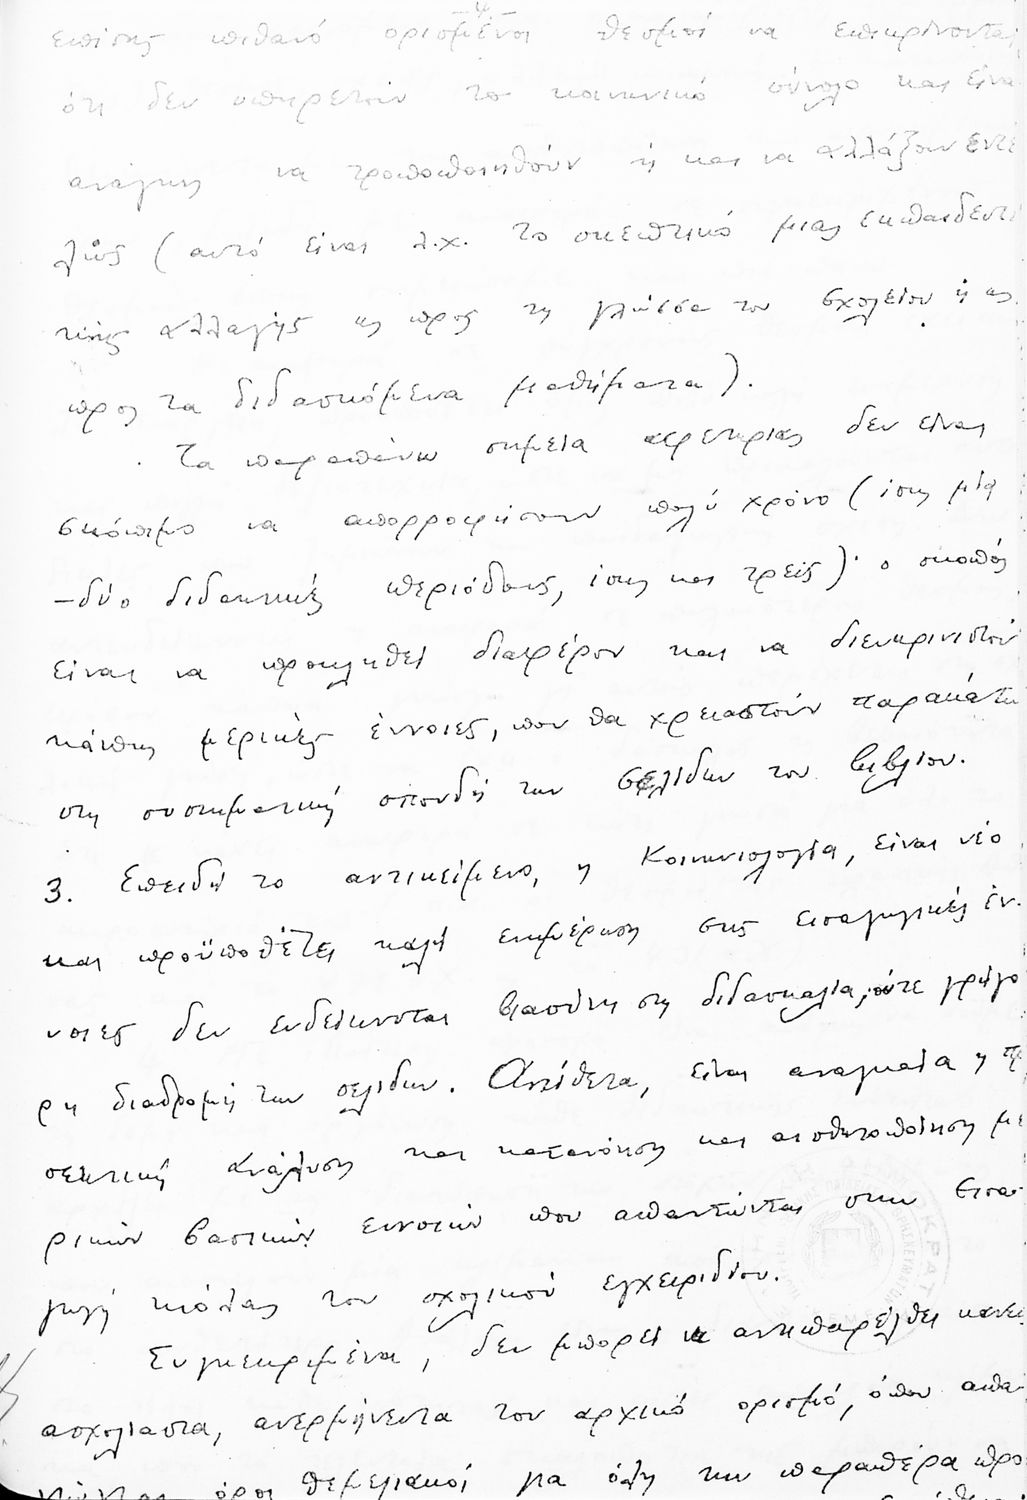 επίσης πιθανό ορισμένοι θεσμοί να επικρίνονται
ότι δεν υπηρετούν το κοινωνικό σύνολο και είναι
ανάγκη να τροποποιηθούν ή και να αλλάξουν εντε
λώς (αυτό είναι λ.χ. το σκεπτικό μιας εκπαιδευτι
κής αλλαγής ως προς τη γλώσσα του σχολείου ή ως
προς τα διδασκόμενα μαθήματα).
Τα παραπάνω σημεία αφετηρίας δεν είναι
σκόπιμο να απορροφήσουν πολύ χρόνο (ίσως μία
-δύο διδακτικές περιόδους, ίσως και τρεις)· ο σκοπός
είναι να προκληθεί διαφέρον και να διευκρινιστούν
κάπως μερικές έννοιες, που θα χρειαστούν παρακάτω
στη συστηματική σπουδή των σελίδων του βιβλίου.
3. Επειδή το αντικείμενο, η Κοινωνιολογία, είναι νέο
και προϋποθέτει καλή ενημέρωση στις εισαγωγικές έν-
νοιες δεν ενδείκνυται βιασύνη στη διδασκαλία, ούτε γρήγο
ρη διαδρομή των σελίδων. Αντίθετα, είναι αναγκαία η προ
σεκτική ανάλυση και κατανόηση και αισθητοποίηση με
ρικών βασικών εννοιών που απαντώνται στην Εισα-
γωγή κιόλας του σχολικού εγχειριδίου.
Συγκεκριμένα, δεν μπορεί να αντιπαρέλθει κανείς
ασχολίαστα, ανερμήνευτα τον αρχικό ορισμό, όπου απα-
όροι θεμελιακοί για όλη την παραπέρα προ